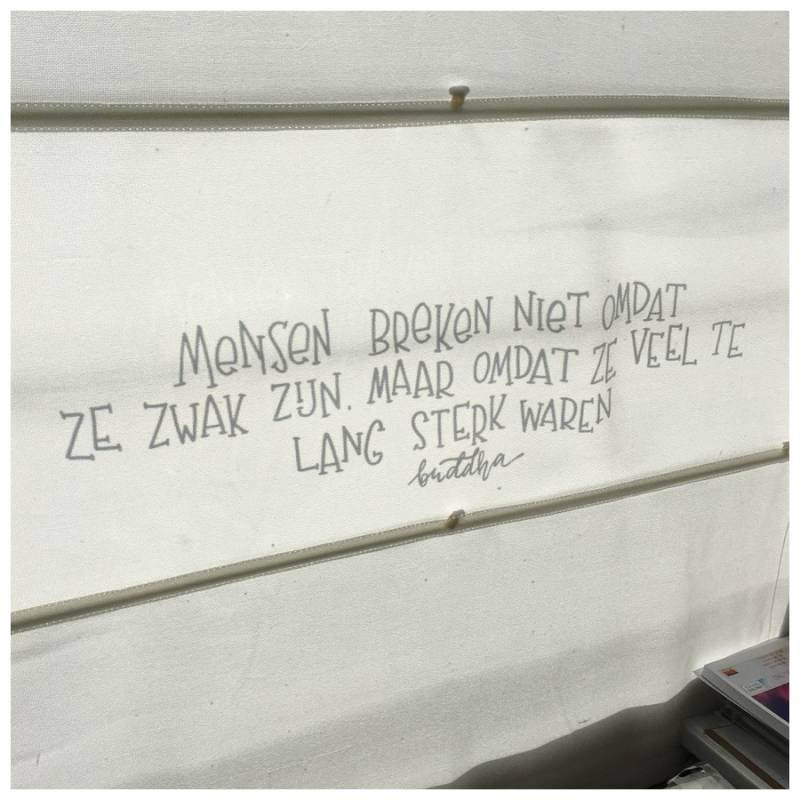 MeNSeN BReKeN NieT OMDAT
ZE ZWAK ZIJN. MAAR OMDAT ZE VEEL TE
LANG STERK WAREN
buddha